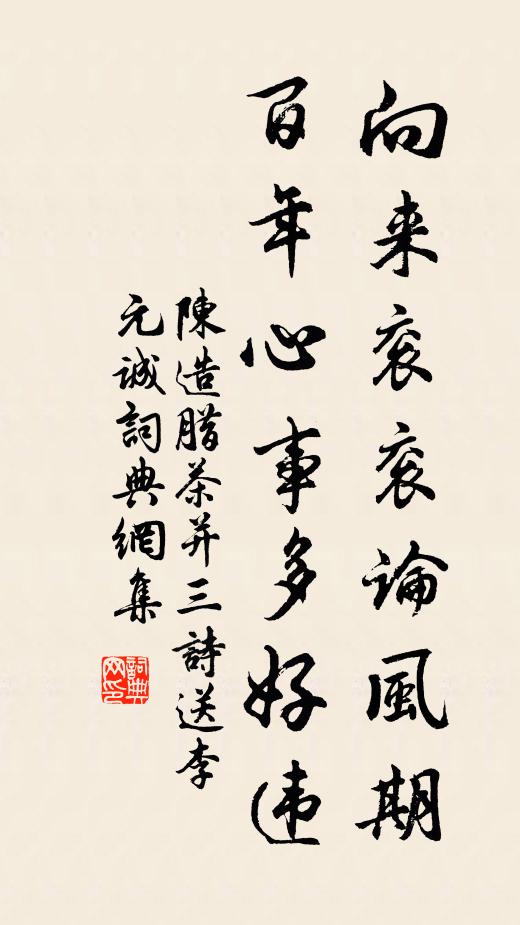 向来衮衮論風期
百年心事多好违
陳造腊茶并三詩送李
元诚詞典網集
詞典網印